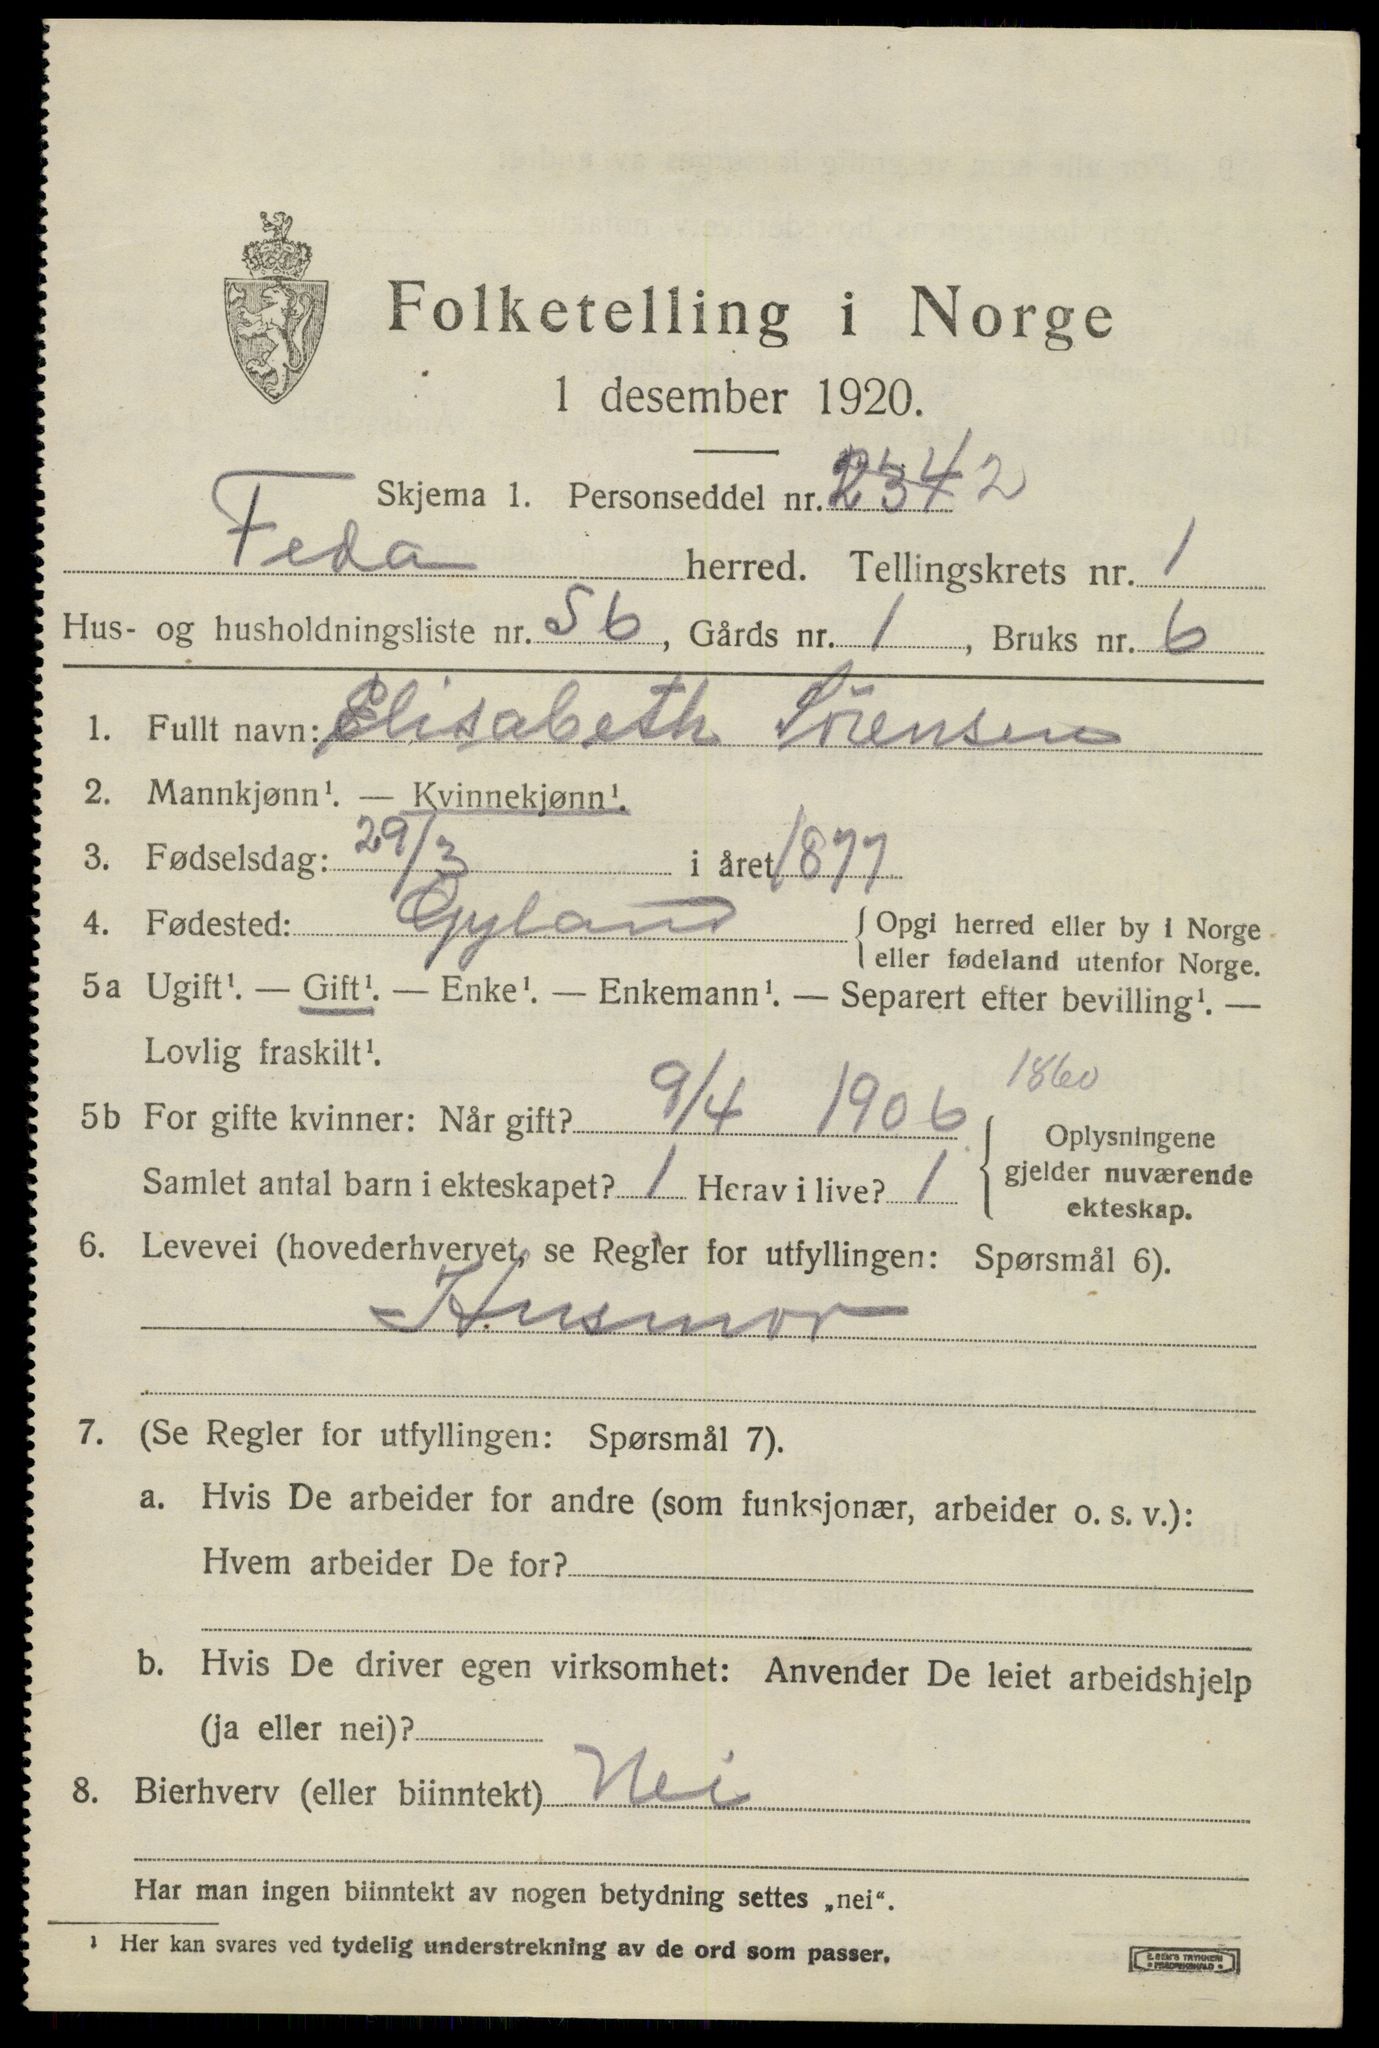 Folketelling i Norge
1 desember 1920.
Skjema 1. Personseddel nr.
Feda herred. Tellingskrets nr. 1
Hus- og husholdningsliste nr. 56, Gårds nr. 1, Bruks nr. 6
1. Fullt navn: Elisabeth Sörensen
2. Mannkjønn¹. — Kvinnekjønn¹.
3. Fødselsdag: 29/3 i året 1877
4. Fødested: Gyland { Opgi herred eller by i Norge
eller fødeland utenfor Norge.
5a Ugift¹. — Gift¹. — Enke¹. — Enkemann¹. — Separert efter bevilling¹. —
Lovlig fraskilt¹.
1860
5b For gifte kvinner: Når gift? 9/4 1906
Samlet antal barn i ekteskapet? 1 Herav i live? 1
Oplysningene
gjelder nuværende
ekteskap.
6. Levevei (hovederhvervet, se Regler for utfyllingen: Spørsmål 6).
Husmor
7. (Se Regler for utfyllingen: Spørsmål 7).
a. Hvis De arbeider for andre (som funksjonær, arbeider o. s. v.):
Hvem arbeider De for?
b. Hvis De driver egen virksomhet: Anvender De leiet arbeidshjelp
(ja eller nei)?
8. Bierhverv (eller biinntekt) Nei
Har man ingen biinntekt av nogen betydning settes „nei“.
¹ Her kan svares ved tydelig understrekning av de ord som passer.
E. SEM'S TRYKKERI
FREDRIKSHALD